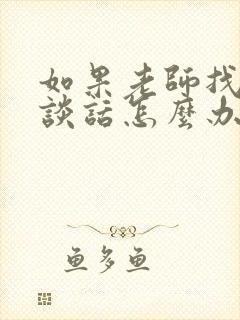 如果老師找
談話怎麼办
鱼多鱼